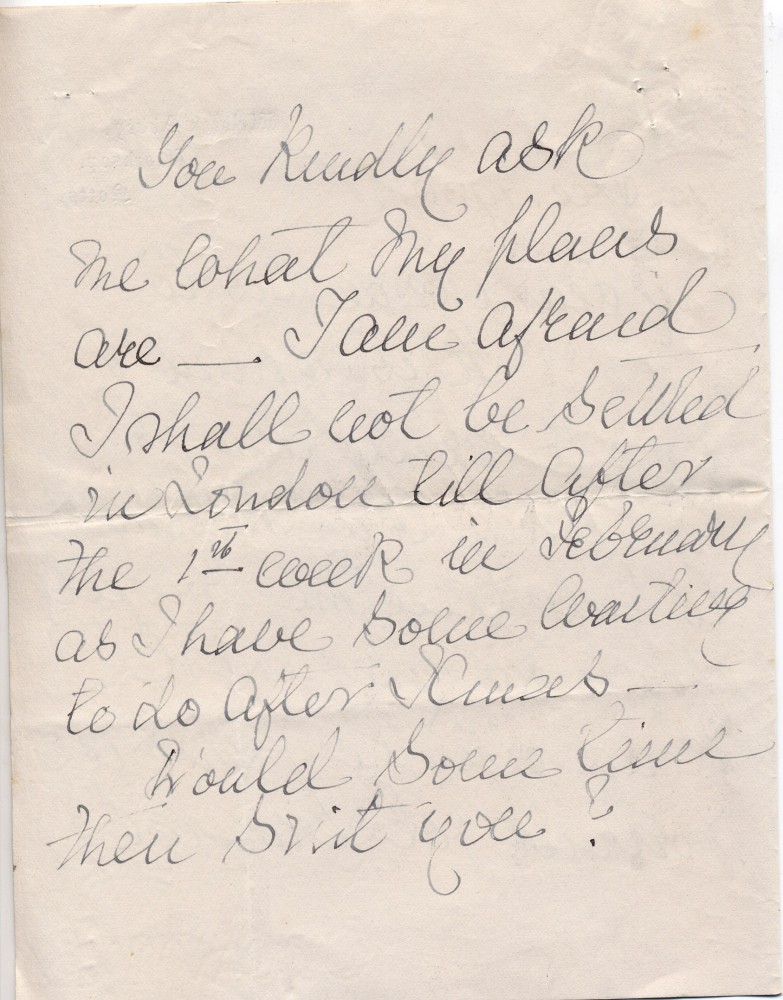 You kindly ask
me what my plans
are — . I am afraid
I shall not be settled
in London till after
the 1st week in February
as I have some waiting
to do after Xmas —
Would some time
then suit you ?